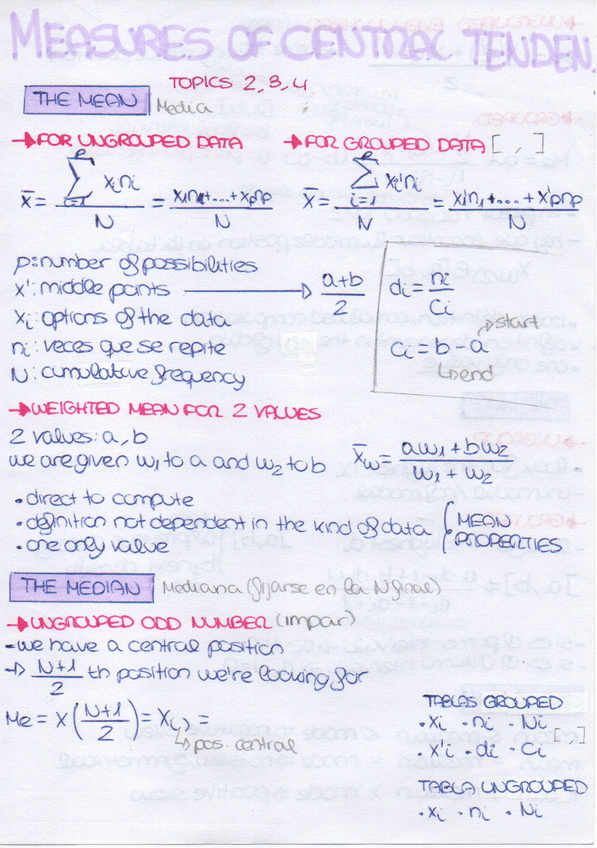 MEASURES OF CENTRAL TENDEN
TOPICS 2, 3, 4
THE MEAN Media
→ FOR UNGROUPED DATA
x̄ = Σ(i=1 to p) xi ni / N = (x1n1 + .... + xpnp) / N
→ FOR GROUPED DATA [ , ]
x̄ = Σ(i=1 to p) xi' ni / N = (x'1n1 + .... + x'pnp) / N
p: number of possibilities
x': middle points → (a+b)/2
xi: options of the data
ni: veces que se repite
N: cumulative frequency
di = ni / Ci
Ci = b - a
start
end
→ WEIGHTED MEAN FOR 2 VALUES
2 values: a, b
we are given w1 to a and w2 to b
x̄w = (aw1 + bw2) / (w1 + w2)
• direct to compute
• definition not dependent in the kind of data
• one only value
MEAN PROPERTIES
THE MEDIAN Mediana (fijarse en la N final)
→ UNGROUPED ODD NUMBER (impar)
- we have a central position
→ (N+1)/2 th position we're looking for
Me = x((N+1)/2) = x( ) =
pos. central
TABLAS GROUPED
• xi • ni • Ni
• x'i • di • Ci [ , ]
TABLA UNGROUPED
• xi • ni • Ni